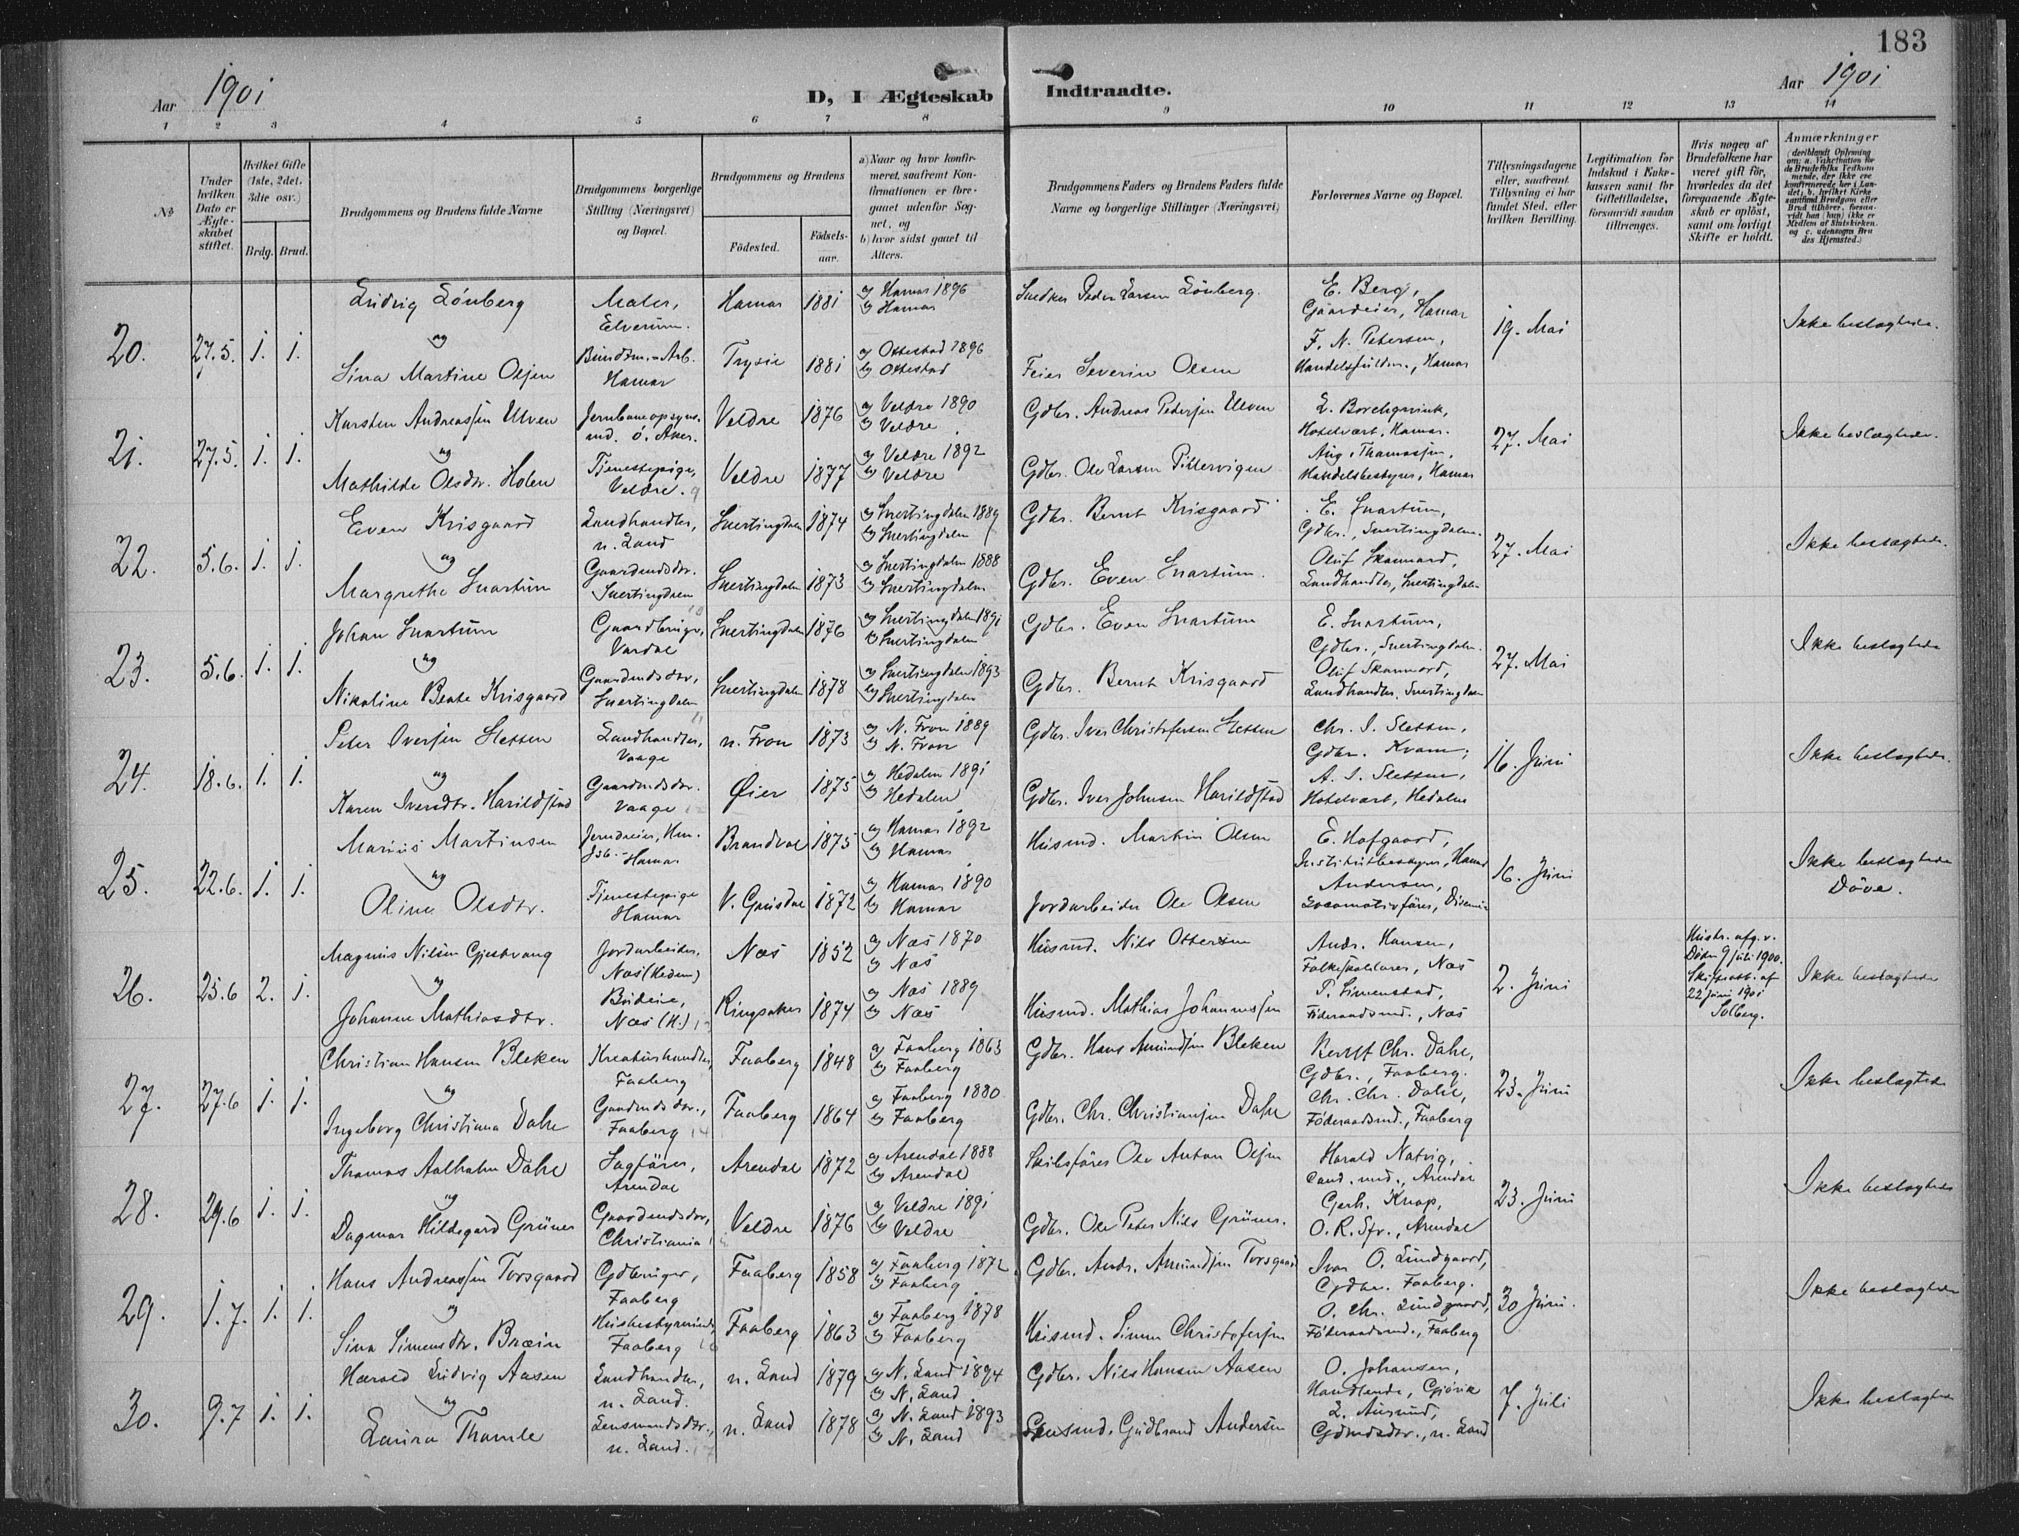 183
Aar 1901
D, I Ægteskab Indtraadte.
Aar 1901
1 2 3 4 5 6 7 8 9 10 11 12 13 14
№
Under hvilken Dato er Ægteskabet stiftet.
Hvilket Gifte (1ste, 2det, 3die osv.)
Brdg. Brud.
Brudgommens og Brudens fulde Navne
Brudgommens borgerlige Stilling (Næringsvei) og Bopæl.
Brudgommens og Brudens
Födested. Födselsaar.
a) Naar og hvor konfirmeret, saafremt Konfirmationen er foregaaet udenfor Sognet, og
b) hvor sidst gaaet til Alters.
Brudgommens Faders og Brudens Faders fulde Navne og borgerlige Stillinger (Næringsvei)
Forlovernes Navne og Bopæl.
Tillysningsdagene eller, saafremt Tillysning ei har fundet Sted, efter hvilken Bevilling.
Legitimation for Indskud i Enkekassen samt for Giftetilladelse, forsaavidt saadan tiltrænges.
Hvis nogen af Brudefolkene har været gift för, hvorledes da det foregaaende Ægteskab er oplöst, samt om lovligt Skifte er holdt.
Anmærkninger
20. 27.5. 1. 1.
Ludvig Lönberg
Maler, Elverum.
Hamar 1881
a) Hamar 1896
b) Hamar
Snedker Peder Larsen Lönberg.
E. Berg, Gaardeier, Hamar
F. N. Petersen, Handelsfuldm., Hamar
19. Mai
Ikke beslægtede.
og
Sina Martine Olsen
Hamar
Trysil 1881
a) Ottestad 1896
b) Ottestad
Feier Severin Olsen
21. 27.5. 1. 1.
Karsten Andreassen Ulven
Veldre 1876
a) Veldre 1890
b) Veldre
Gdbr. Andreas Petersen Ulven
L. Borchgrevink, Hotelvært, Hamar.
Aug. Thomassen, Handelsbestyrer, Hamar
27. Mai
Ikke beslægtede.
og
Mathilde Olsdtr. Holen
Tjenestepige, Veldre.
Veldre 1877
a) Veldre 1892
b) Veldre
Gdbr. Ole Larsen
22. 5.6. 1. 1.
Even Krisgaard
Landhandler, n. Land
Snertingdalen 1874
a) Snertingdalen 1889
b) Snertingdalen
Gdbr. Bernt Krisgaard
E. Snartum, Gdbr., Snertingdalen.
Oluf Skonnord, Landhandler, Snertingdalen
27. Mai
Ikke beslægtede.
og
Margrethe Snartum
Gaardmdsdtr. Snertingdalen
Snertingdalen 1873
a) Snertingdalen 1888
b) Snertingdalen
Gdbr. Even Snartum.
23. 5.6. 1. 1.
Johan Snartum
Gaardbruger, Vardal
Snertingdalen 1876
a) Snertingdalen 1891
b) Snertingdalen
Gdbr. Even Snartum
E. Snartum, Gdbr., Snertingdalen.
Oluf Skonnord, Landhandler, Snertingdalen
27. Mai
Ikke beslægtede
og
Nikoline Beate Krisgaard
Gaardmdsdtr., Snertingdalen
Snertingdalen 1878
a) Snertingdalen 1893
b) Snertingdalen
Gdbr. Bernt Krisgaard
24. 18.6. 1. 1.
Peter Iversen Sletten
Landhandler, Vaage
n. Fron 1873
a) N. Fron 1889
b) N. Fron
Gdbr. Iver Christofersen Sletten
Chr. I. Sletten, Gdbr. Kvam;
A. I. Sletten, Hotelvært, Hedalen
16. Juni
Ikke beslægtede.
og
Karen Iversdtr. Harildstad
Gaardmdsdtr. Vaage
Øier 1875
a) Hedalen 1891
b) Hedalen
Gdbr. Iver Johnsen Harildstad
25. 22.6. 1. 1.
Marius Martinsen
Hamar
Brandval 1875
a) Hamar 1892
b) Hamar
Husmd. Martin Olsen
E. Hofgaard, Institutbestyrer, Hamar
Andersen, Locomotivfører,
16. Juni
Ikke beslægtede
Döve.
og
Oline Olsdtr.
Tjenestepige Hamar
V. Gausdal 1872
a) Hamar 1890
b) Hamar
Jordarbeider Ole Olsen
26. 25.6 2. 1.
Magnus Nilsen Gjestvang
Jordarbeider, Næs (Hedem)
Næs 1852
a) Næs 1870
b) Næs
Husmd. Nils Ottersen
Andr. Hansen, Folkeskolelærer, Næs
P. Simenstad, Föderaadsmd., Næs
2. Juni
Hustr. afg. v. Döden 9 juli 1900.
Skifteatt. af 22 Juni 1901
Solberg.
Ikke beslægtede
og
Johanne Mathiasdtr.
Budeie, Næs (H.)
Ringsaker 1874
a) Næs 1889
b) Næs
Husmd. Mathias Johannessen
27. 27.6 1. 1.
Christian Hansen Bleken
Kreaturhandler, Faaberg
Faaberg 1848
a) Faaberg 1863
b) Faaberg
Gdbr. Hans Amundsen Bleken
Bernt Chr. Dahl, Gdbr., Faaberg.
Chr. Chr. Dahl, Föderaadsmd., Faaberg
23. Juni
Ikke beslægtede
og
Ingeborg Christiana Dahl
Gaardmdsdtr., Faaberg
Faaberg 1864
a) Faaberg 1880
b) Faaberg
Gdbr. Chr. Christiansen Dahl
28. 29.6 1. 1.
Thomas Aalholm Dahl
Sagförer, Arendal
Arendal 1872
a) Arendal 1888
b) Arendal
Skibsförer Ole Anton Olsen
Harald Natvig, Cand. med., Arendal
Gerh. Knap, O.R.Sfr., Arendal
23. Juni
Ikke beslægtede
og
Dagmar Hildegard Grüner
Gaardmdsdtr, Christiania
Veldre 1876
a) Veldre 1891
b) Veldre
Gdbr. Ole Peter Nils Grüner.
29. 1.7. 1. 1.
Hans Andreassen Torsgaard
Gdbruger, Faaberg
Faaberg 1858
a) Faaberg 1872
b) Faaberg
Gdbr. Andr. Amundsen Torsgaard
Ivar O. Lundgaard, Gdbr. Faaberg.
O. Chr. Lundgaard, Föderaadsmd., Faaberg
30 Juni.
Ikke beslægtede
og
Sina Simensdtr. Bræin
Husbestyrerinde Faaberg
Faaberg 1863
a) Faaberg 1878
b) Faaberg
Husmd. Simen Christofersen
30. 9.7 1. 1.
Harald Ludvig Aasen
Landhandler, n. Land.
n. Land 1879
a) N. Land 1894
b) N. Land
Gdbr. Nils Hansen Aasen
O. Johansen, Handlende, Gjövik
L. Aurlund, Gdmdsdtr., n. Land
7. Juli
Ikke beslægtede
og
Laura Thomle
Lensmandsdtr., n. Land.
n. Land 1878
a) N. Land 1893
b) N. Land
Lensmd. Gudbrand Andersen